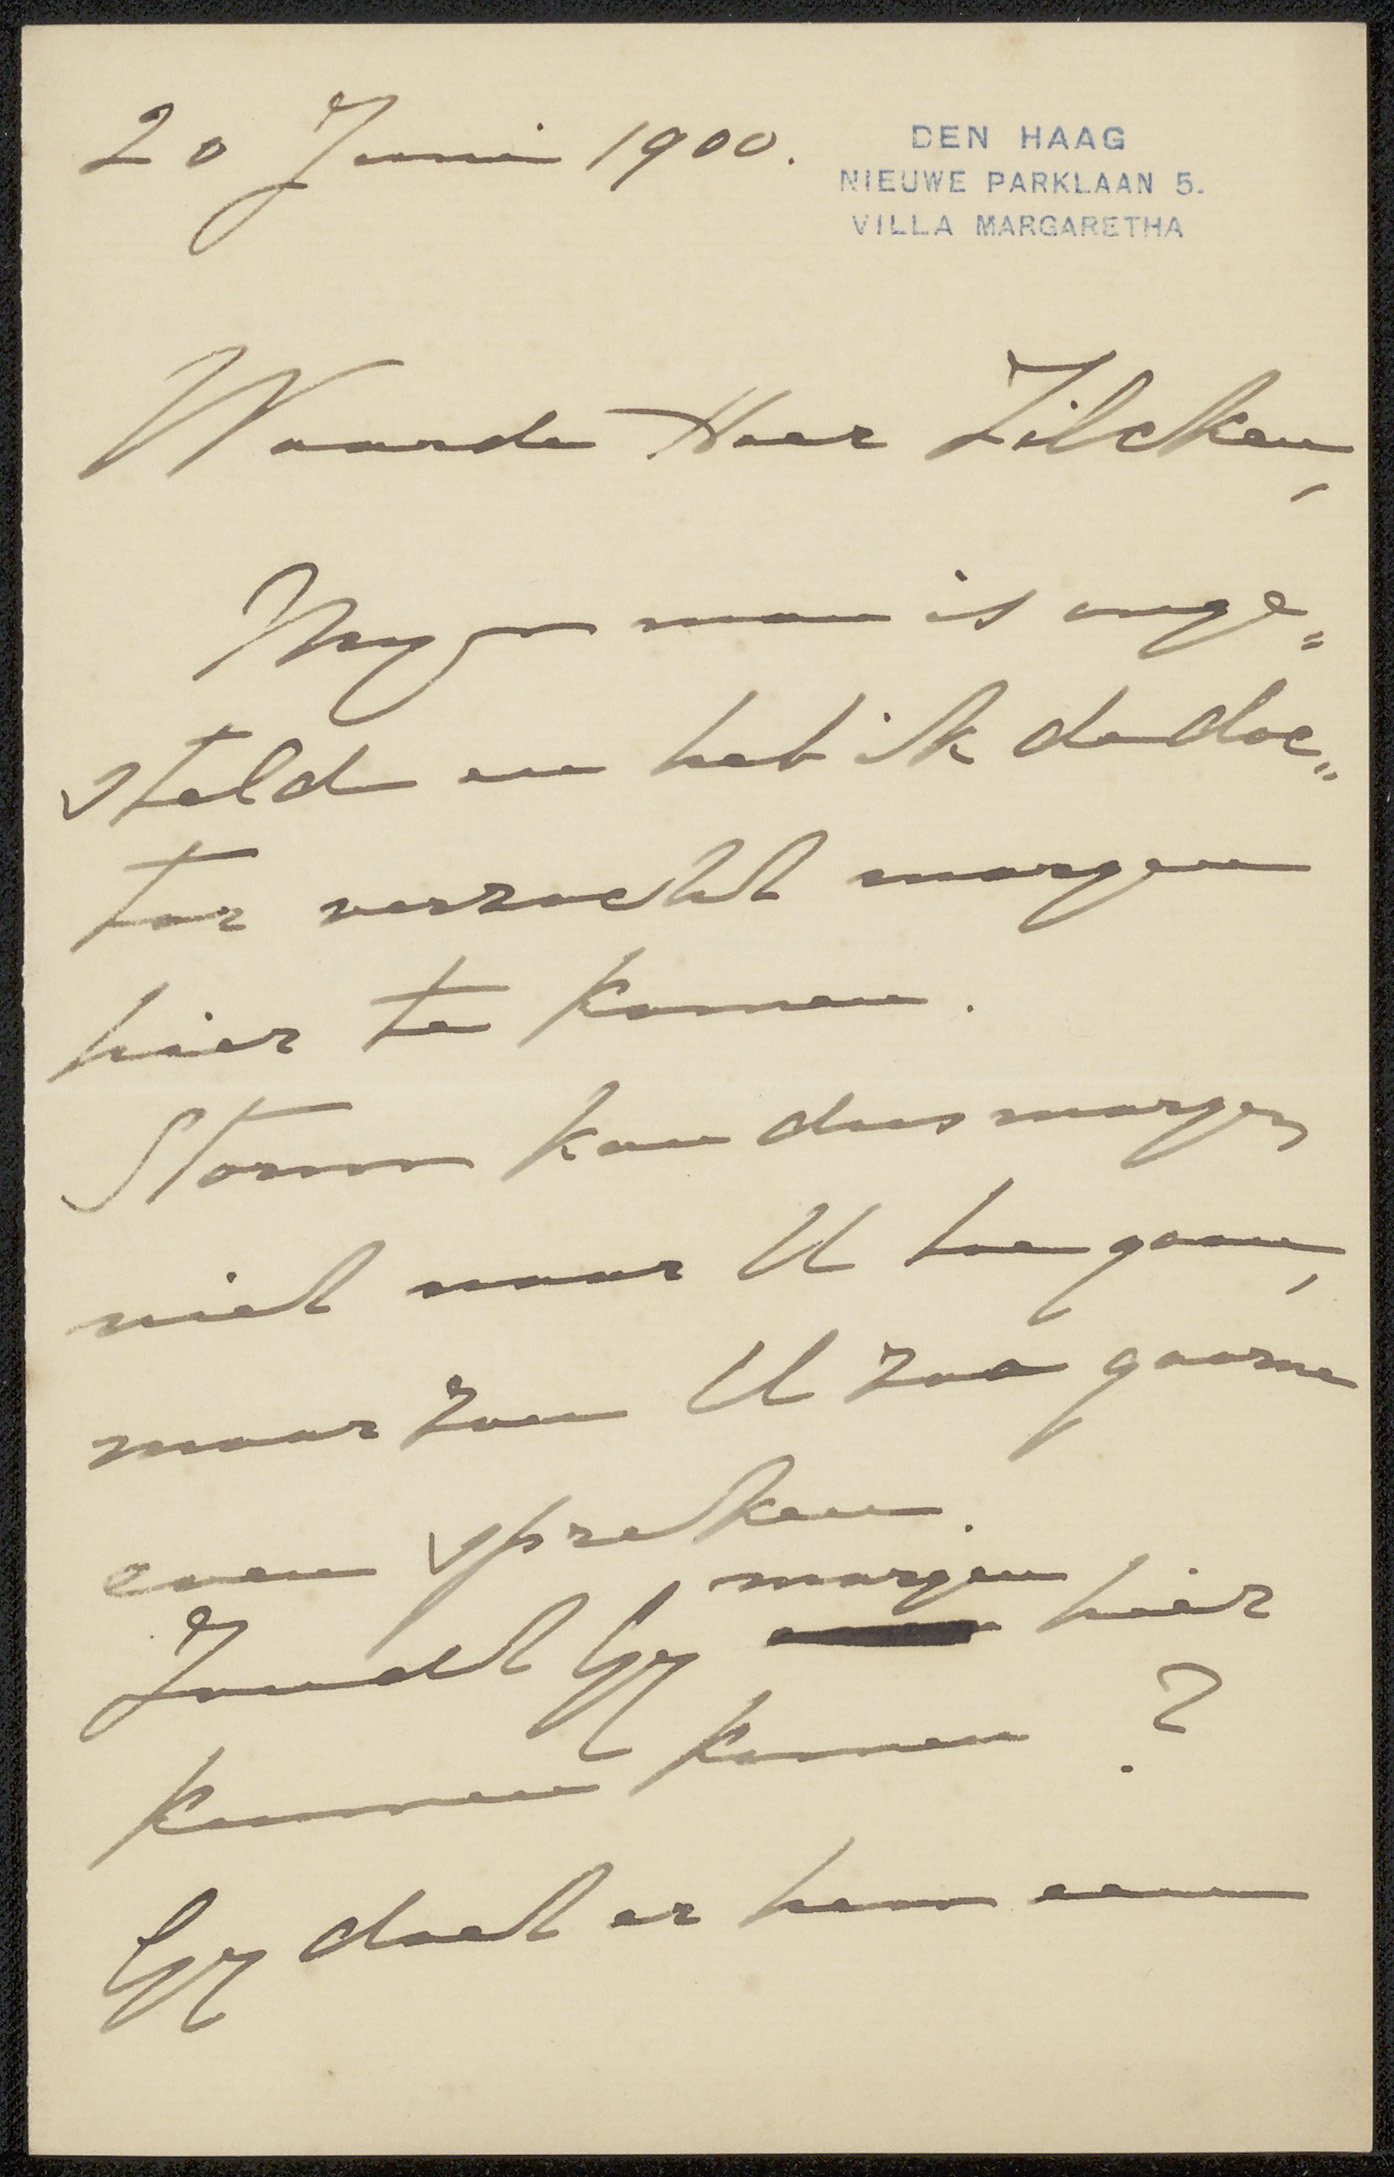 20 Juni 1900.
DEN HAAG
NIEUWE PARKLAAN 5.
VILLA MARGARETHA
Waarde Heer Zilcken,
Myn man is onge=
steld en heb ik de doc=
tor verzocht morgen
hier te komen.
Storm kan dus morgen
niet naar U toe gaan,
maar zou U zoo gaarne
even spreken.
Zoudt Gy morgen hier
kunnen komen?
Gy doet er hem een